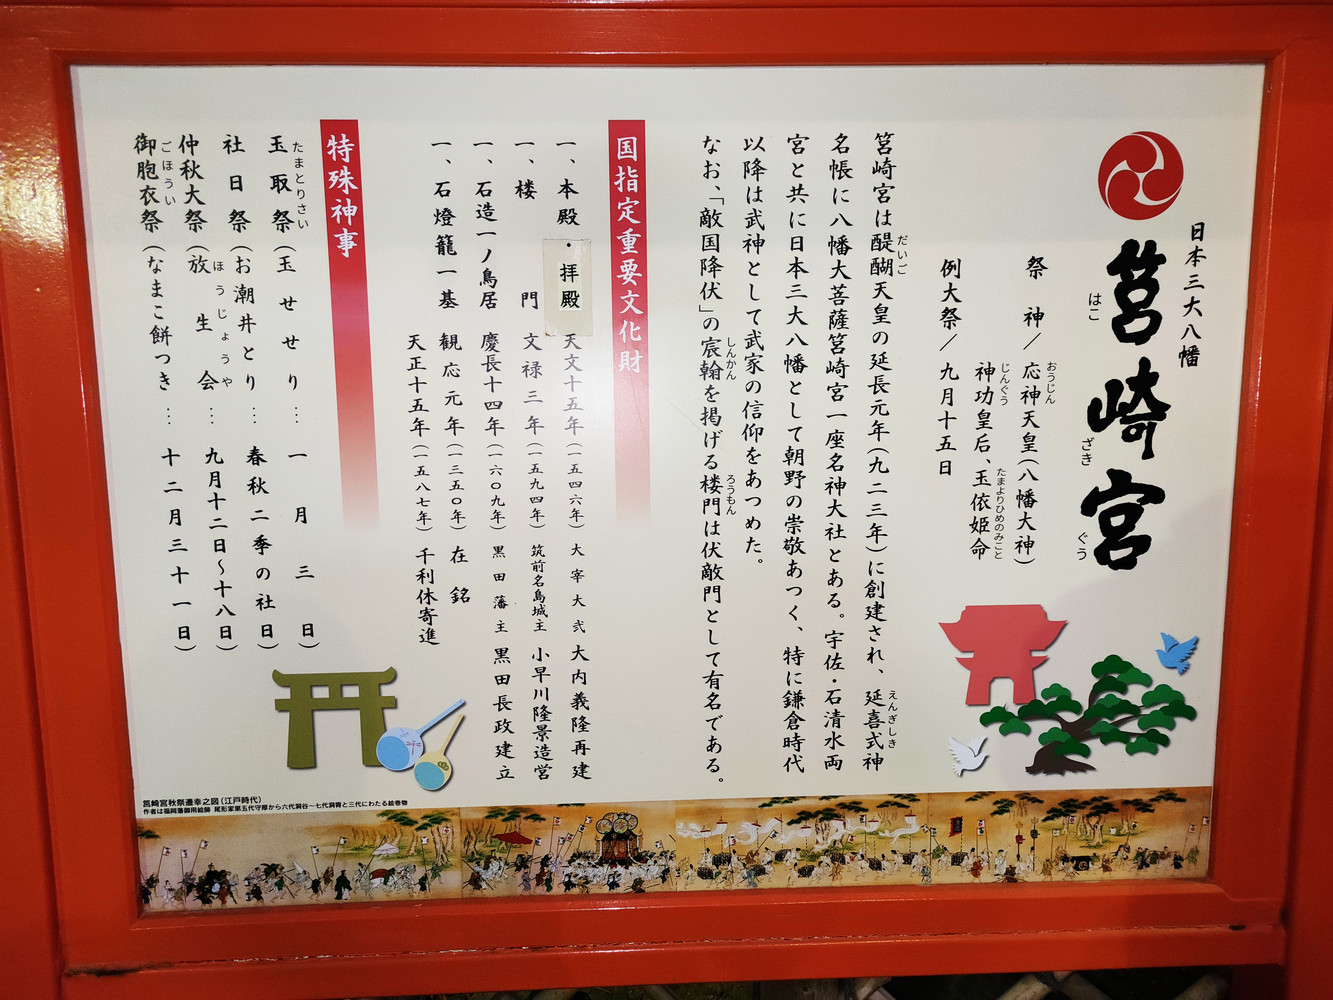 日本三大八幡
筥崎宮
はこ
ざき
ぐう
祭 神／ 応神天皇(八幡大神)
おうじん
神功皇后、玉依姫命
じんぐう
たまよりひめのみこと
例大祭／ 九月十五日
筥崎宮は醍醐天皇の延長元年(九二三年)に創建され、延喜式神
だいご
えんぎしき
名帳に八幡大菩薩筥崎宮一座名神大社とある。宇佐・石清水両
宮と共に日本三大八幡として朝野の崇敬あつく、特に鎌倉時代
以降は武神として武家の信仰をあつめた。
なお、「敵国降伏」の宸翰を掲げる楼門は伏敵門として有名である。
しんかん
ろうもん
国指定重要文化財
一、本殿・拝殿 天文十五年(一五四六年) 大宰大弐 大内義隆再建
一、楼 門 文禄三年(一五九四年) 筑前名島城主 小早川隆景造営
一、石造一ノ鳥居 慶長十四年(一六〇九年) 黒田藩主 黒田長政建立
一、石燈籠一基 観応元年(一三五〇年) 在 銘
天正十五年(一五八七年) 千利休寄進
特殊神事
玉取祭(玉せせり… 一月三日)
たまとりさい
社日祭(お潮井とり… 春秋二季の社日)
仲秋大祭(放生会… 九月十二日〜十八日)
ほうじょうや
御胞衣祭(なまこ餅つき… 十二月三十一日)
ごほうい
筥崎宮秋祭遷幸之図(江戸時代)
作者は福岡藩御用絵師 尾形家第五代守厚から六代洞谷〜七代洞霄と三代にわたる絵巻物